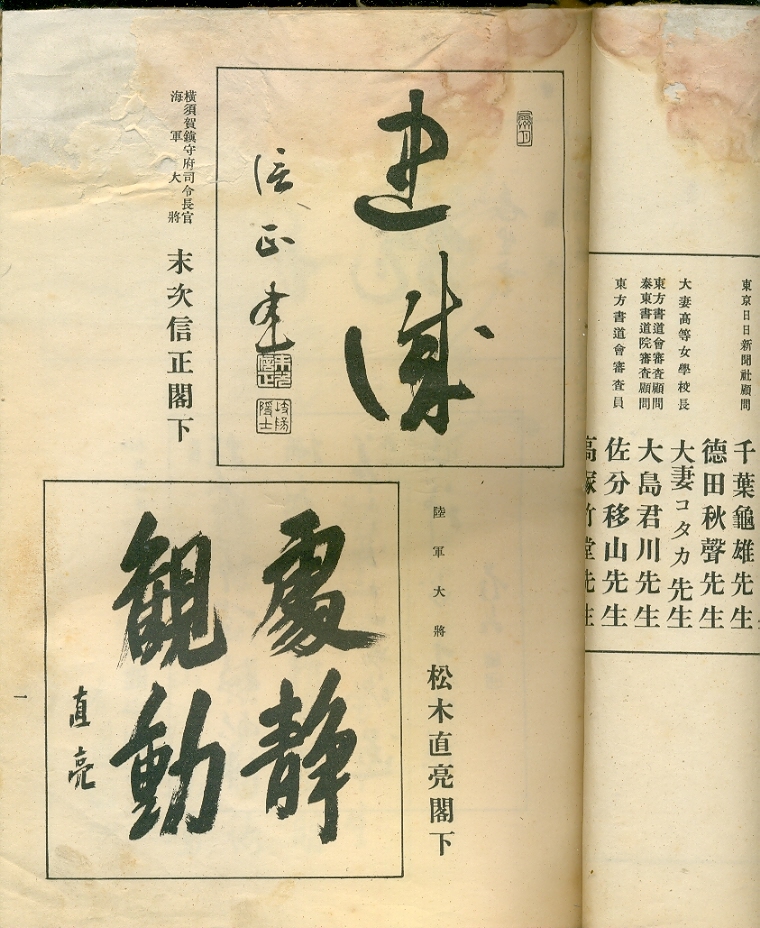 東京日日新聞社顧問 千葉龜雄先生
德田秋聲先生
大妻高等女學校長 大妻コタカ先生
東方書道會審査顧問
泰東書道院審査顧問 大島君川先生
東方書道會審査員 佐分移山先生
高塚竹堂先生
誠
信正書
横須賀鎭守府司令長官
海軍大將 末次信正閣下
陸軍大將 松木直亮閣下
處静
觀動
直亮
一